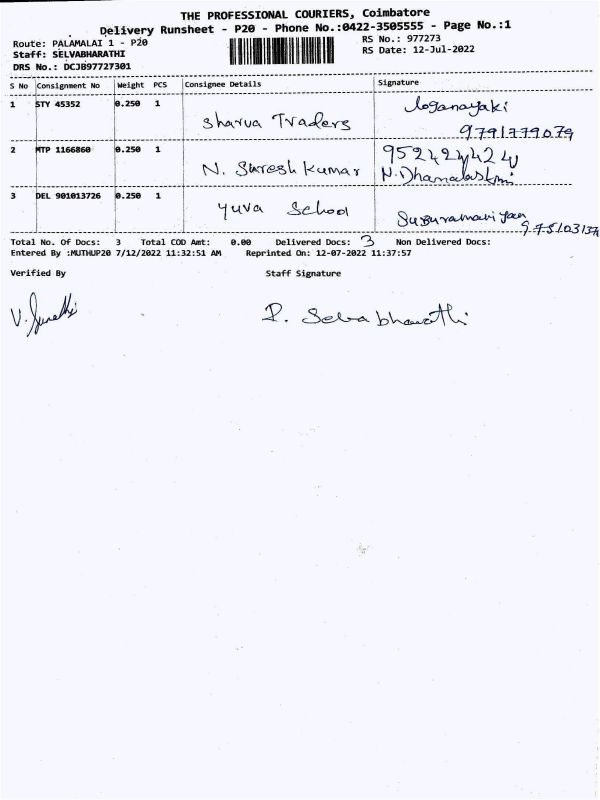 THE PROFESSIONAL COURIERS, Coimbatore
Delivery Runsheet - P20 - Phone No.:0422-3505555 - Page No.:1
Route: PALAMALAI 1 - P20
RS No.: 977273
Staff: SELVABHARATHI
RS Date: 12-Jul-2022
DRS No.: DCJB97727301
S No Consignment No Weight PCS Consignee Details Signature
1 STY 45352 0.250 1 Sharva Traders Loganayaki
9791779079
2 MTP 1166860 0.250 1 N. Suresh Kumar
N.
3 DEL 901013726 0.250 1 Yuva School
Total No. Of Docs: 3 Total COD Amt: 0.00 Delivered Docs: 3 Non Delivered Docs:
Entered By :MUTHUP20 7/12/2022 11:32:51 AM Reprinted On: 12-07-2022 11:37:57
Verified By Staff Signature
V. Selvabharathi